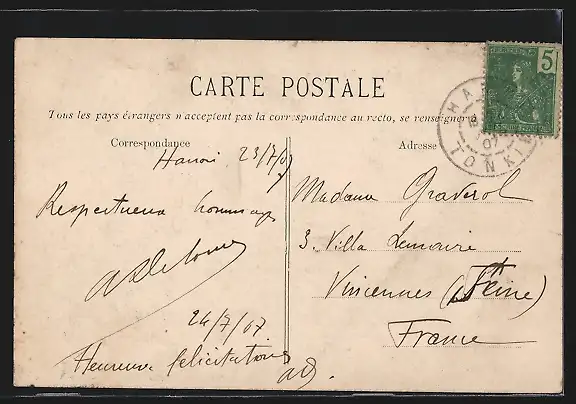 CARTE POSTALE
Tous les pays étrangers n'acceptent pas la correspondance au recto, se renseigner
Correspondance
Adresse
5
HA
07
TONKIN
Hanoi 23/7/07
Respectueux hommages
24/7/07
Heureuse félicitations
Madame Graverol
3. Villa Lemaire
Vincennes (Seine)
France